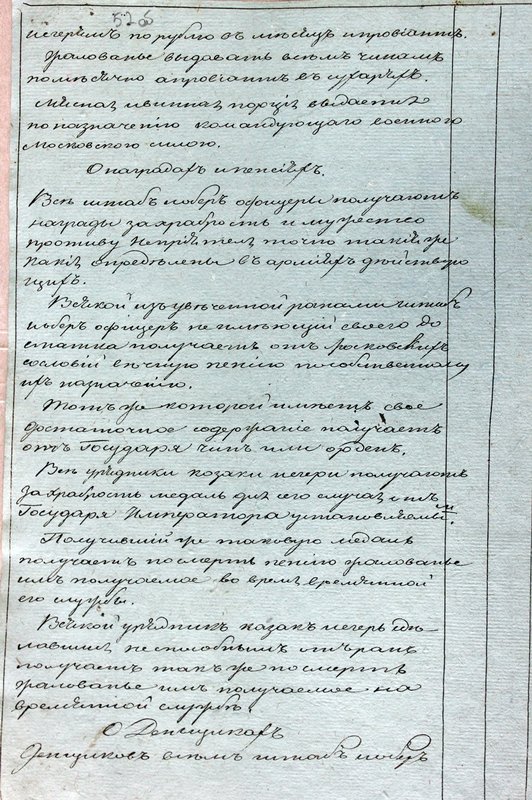 526
егерямъ по рублю въ мѣсяцъ и провіантъ.
Жалованье выдавать всѣмъ чинамъ
помѣсячно а провіантъ въ сухаряхъ.
Мясная и винная порція выдается
по назначенію командующаго военного
Московскою силою.
О наградахъ и пенсіяхъ.
Всѣ штабъ и оберъ офицеры получаютъ
награды за храбрость и мужество
противу непріятеля точно такія же
какія опредѣлены въ арміяхъ дѣйствую
щихъ.
Всякой изъувѣченной ранами штабъ
и оберъ офицеръ не имѣющій своего до
статка получаетъ отъ Московскихъ
сословій вѣчную пенсію по собственному
ихъ назначенію.
Тотъ же которой имѣетъ свое
достаточное содержаніе получаетъ
отъ Государя чинъ или орденъ.
Всѣ урядники козаки и егери получаютъ
за храбрость медаль для сего случая отъ
Государя Императора установляемый.
Получившій же таковую медаль
получаетъ по смерть пенсію жалованье
имъ получаемое во время временной
его службы.
Всякой урядникъ казакъ и егерь сдѣ-
лавшись неспособнымъ отъ ранъ
получаетъ такъ же по смерть
жалованье имъ получаемое на
временной службѣ.
О Деньщикахъ
Деньщиковъ всѣмъ штабъ и оберъ